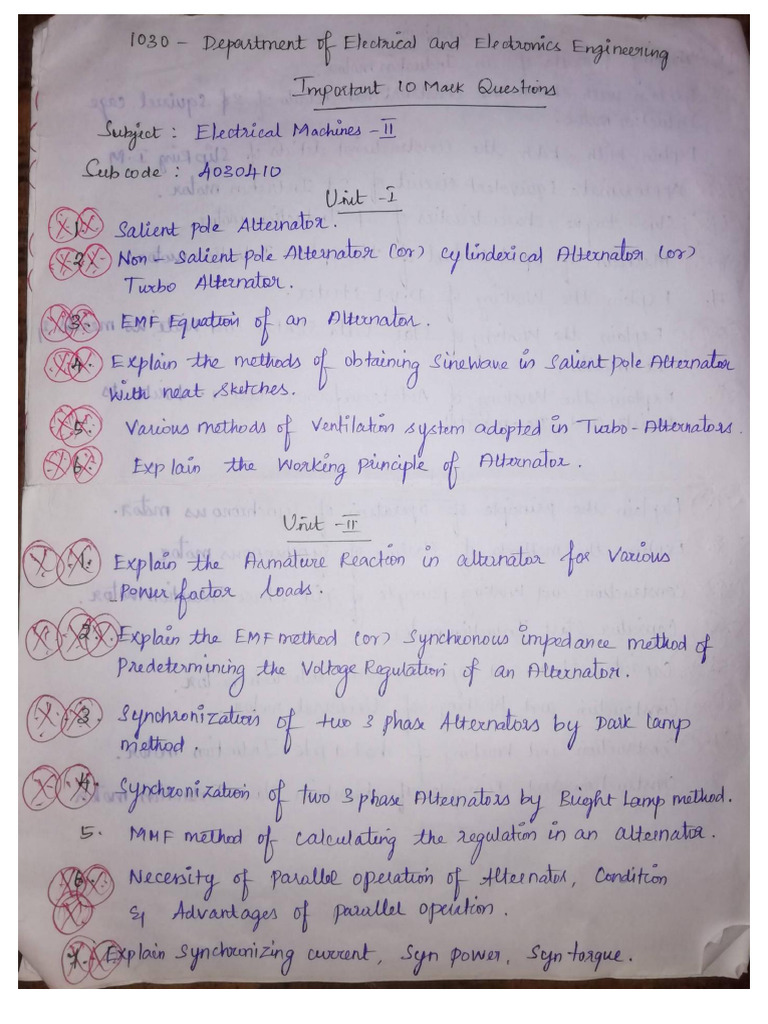 1030 - Department of Electrical and Electronics Engineering
Important 10 Mark Questions
Subject : Electrical Machines - II
Subcode : A030410
Unit - I
1. Salient pole Alternator.
2. Non - Salient pole Alternator (or) Cylinderical Alternator (or)
Turbo Alternator.
3. EMF Equation of an Alternator.
4. Explain the methods of obtaining Sinewave in Salient pole Alternator
with neat sketches.
5. Various methods of Ventilation system adopted in Turbo - Alternators.
6. Explain the Working Principle of Alternator.
Unit - II
1. Explain the Armature Reaction in alternator for Various
Power factor loads.
2. Explain the EMF method (or) Synchronous impedance method of
Predetermining the Voltage Regulation of an Alternator.
3. Synchronization of two 3 phase Alternators by Dark lamp
method.
4. Synchronization of two 3 phase Alternators by Bright Lamp method.
5. MMF method of Calculating the regulation in an alternator.
6. Necessity of parallel operation of Alternator, Condition
& Advantages of parallel operation.
7. Explain Synchronizing current, Syn power, Syn torque.